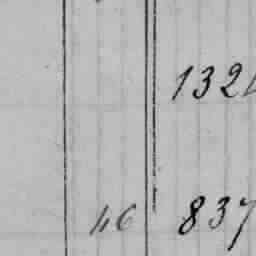 132
46 837